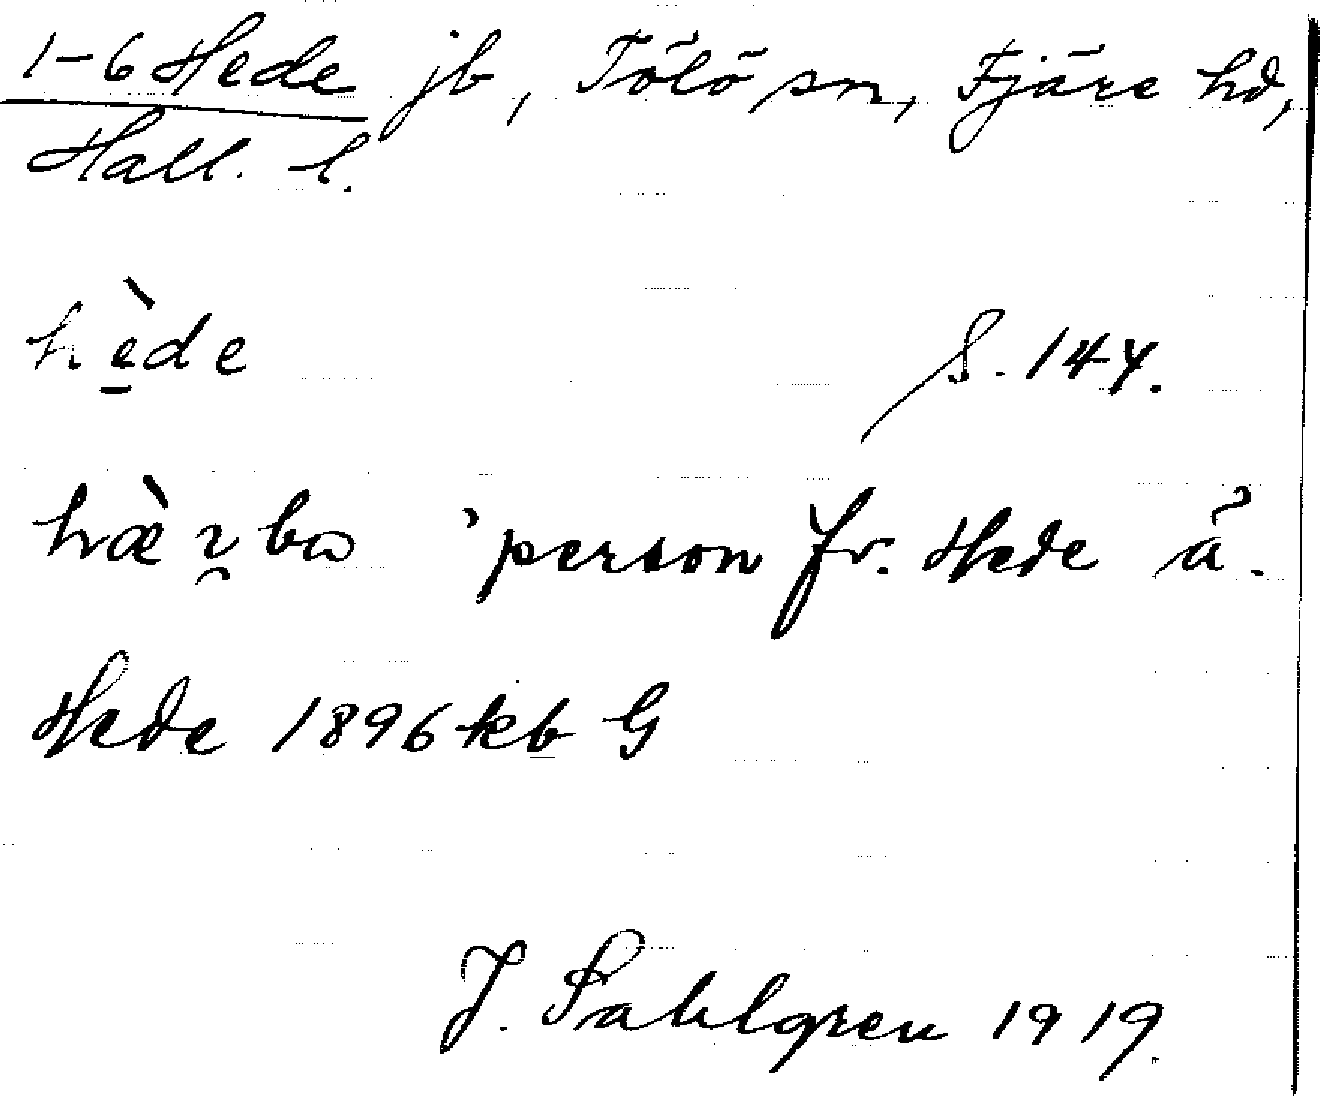 1-6 Hede jb, Tölö sn, Fjäre hd,
Hall. l.
hède S. 144.
'person fr. Hede å.
Hede 1896 kb G
J. Sahlgren 1919.